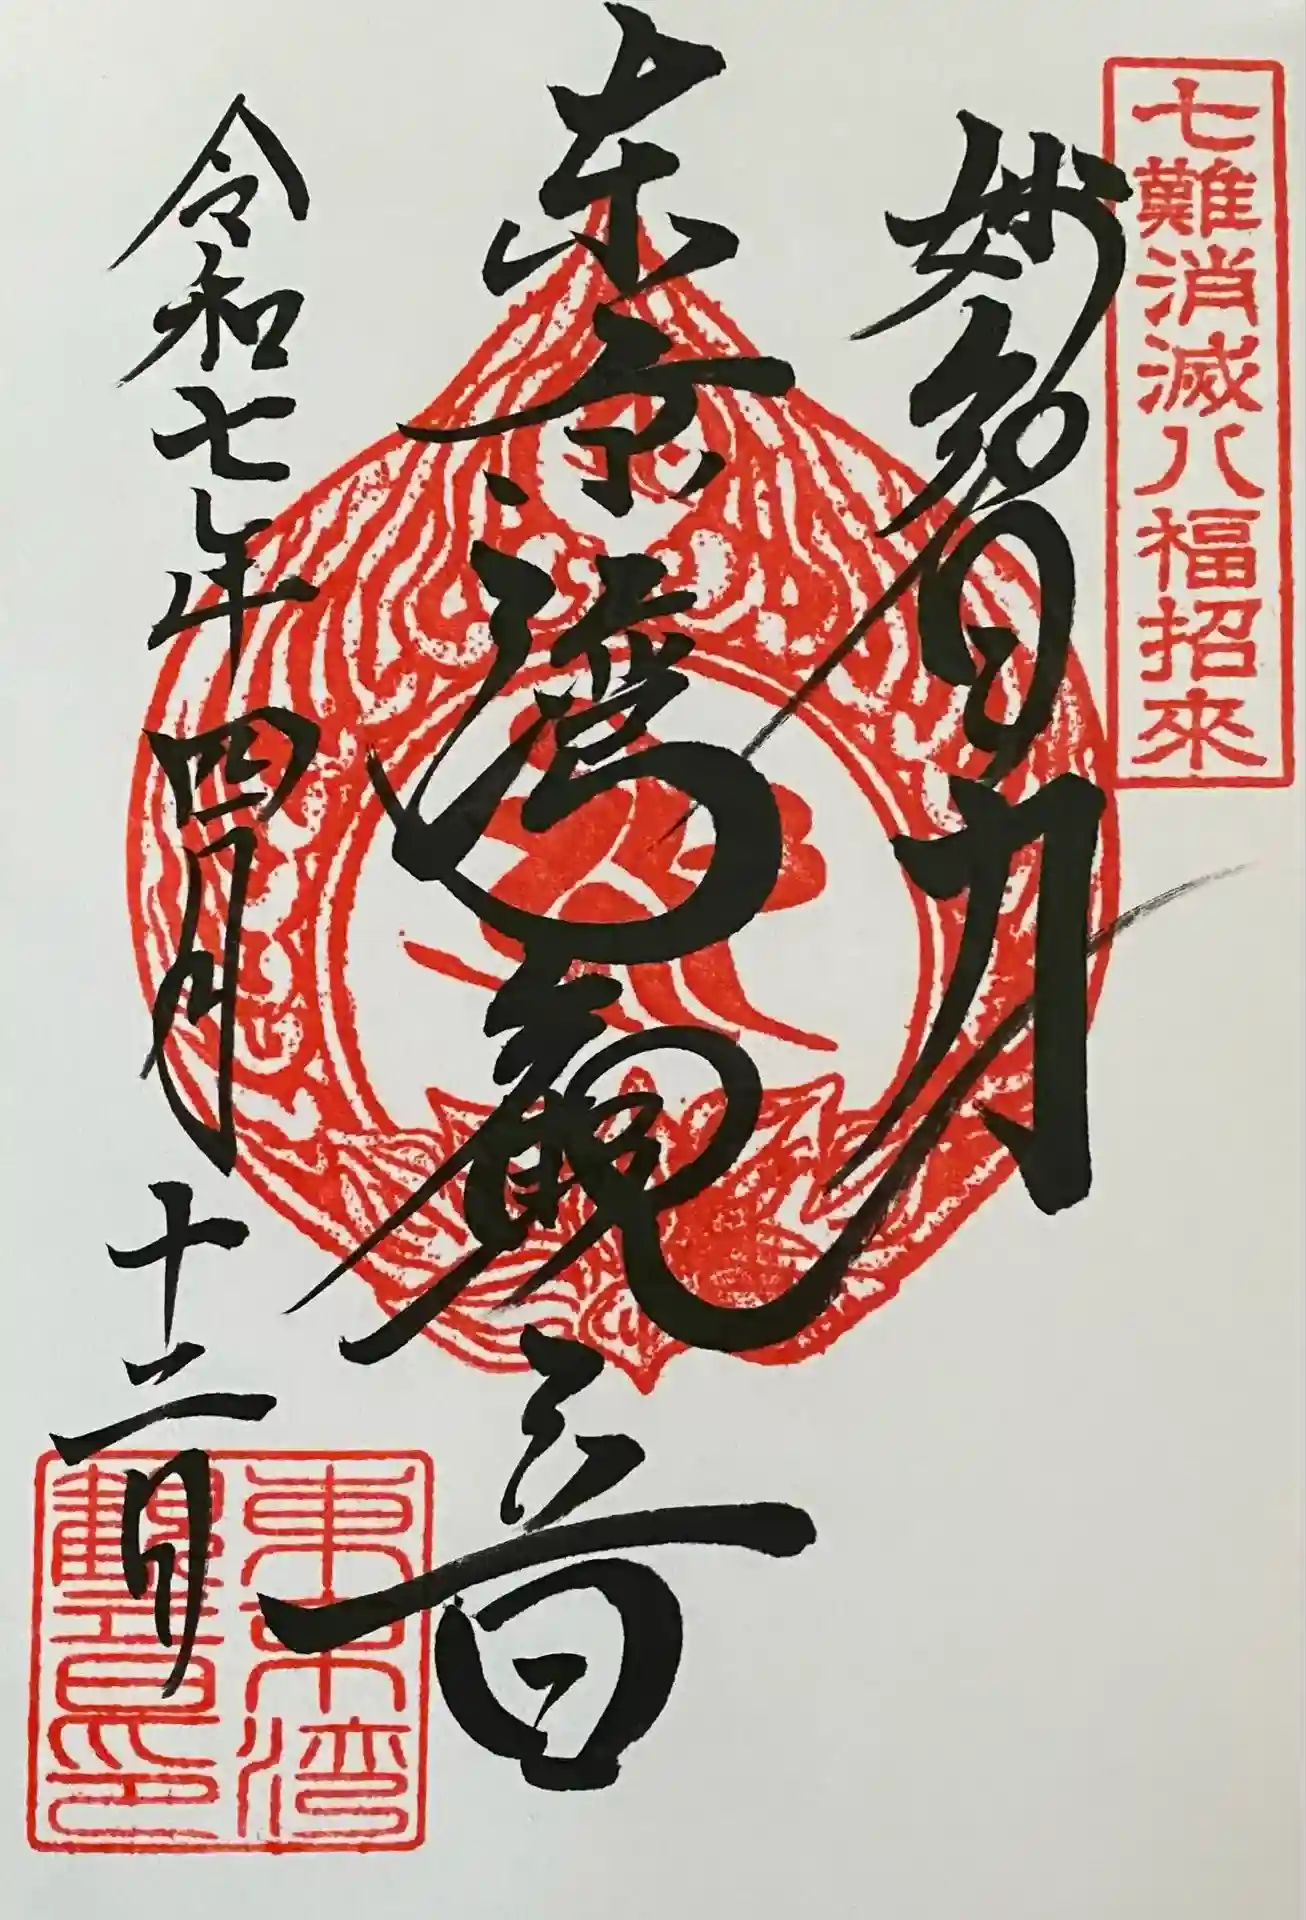 七難消滅八福招來
妙智力
東京湾観音
令和七年四月十二日
東京湾
觀音印